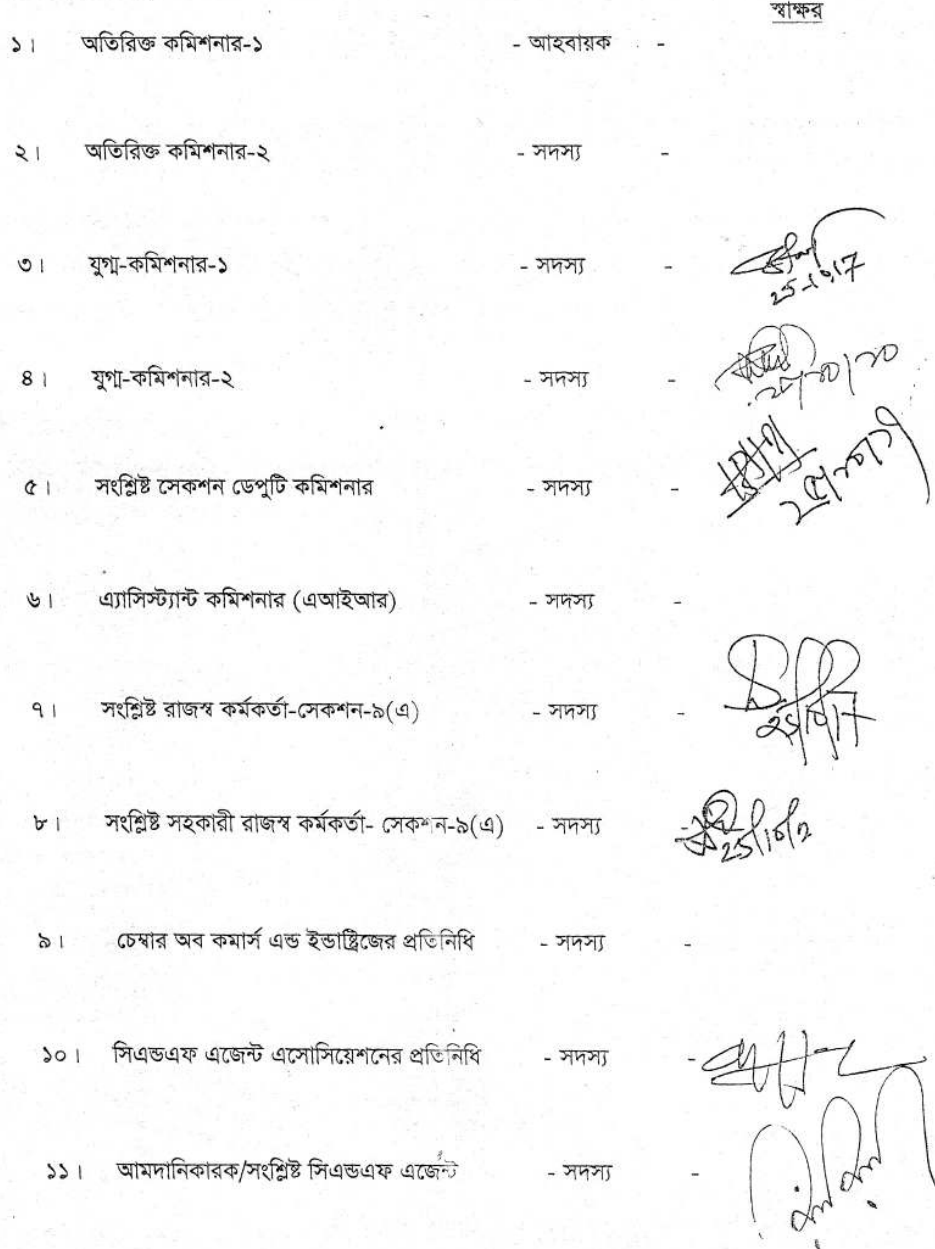 স্বাক্ষর
১। অতিরিক্ত কমিশনার-১ - আহবায়ক -
২। অতিরিক্ত কমিশনার-২ - সদস্য -
৩। যুগ্ম-কমিশনার-১ - সদস্য -
25-10-17
৪। যুগ্ম-কমিশনার-২ - সদস্য -
৫। সংশ্লিষ্ট সেকশন ডেপুটি কমিশনার - সদস্য -
৬। এ্যাসিস্ট্যান্ট কমিশনার (এআইআর) - সদস্য -
৭। সংশ্লিষ্ট রাজস্ব কর্মকর্তা-সেকশন-৯(এ) - সদস্য -
৮। সংশ্লিষ্ট সহকারী রাজস্ব কর্মকর্তা- সেকশন-৯(এ) - সদস্য -
৯। চেম্বার অব কমার্স এন্ড ইন্ডাষ্ট্রিজের প্রতিনিধি - সদস্য -
১০। সিএন্ডএফ এজেন্ট এসোসিয়েশনের প্রতিনিধি - সদস্য -
১১। আমদানিকারক/সংশ্লিষ্ট সিএন্ডএফ এজেন্ট - সদস্য -